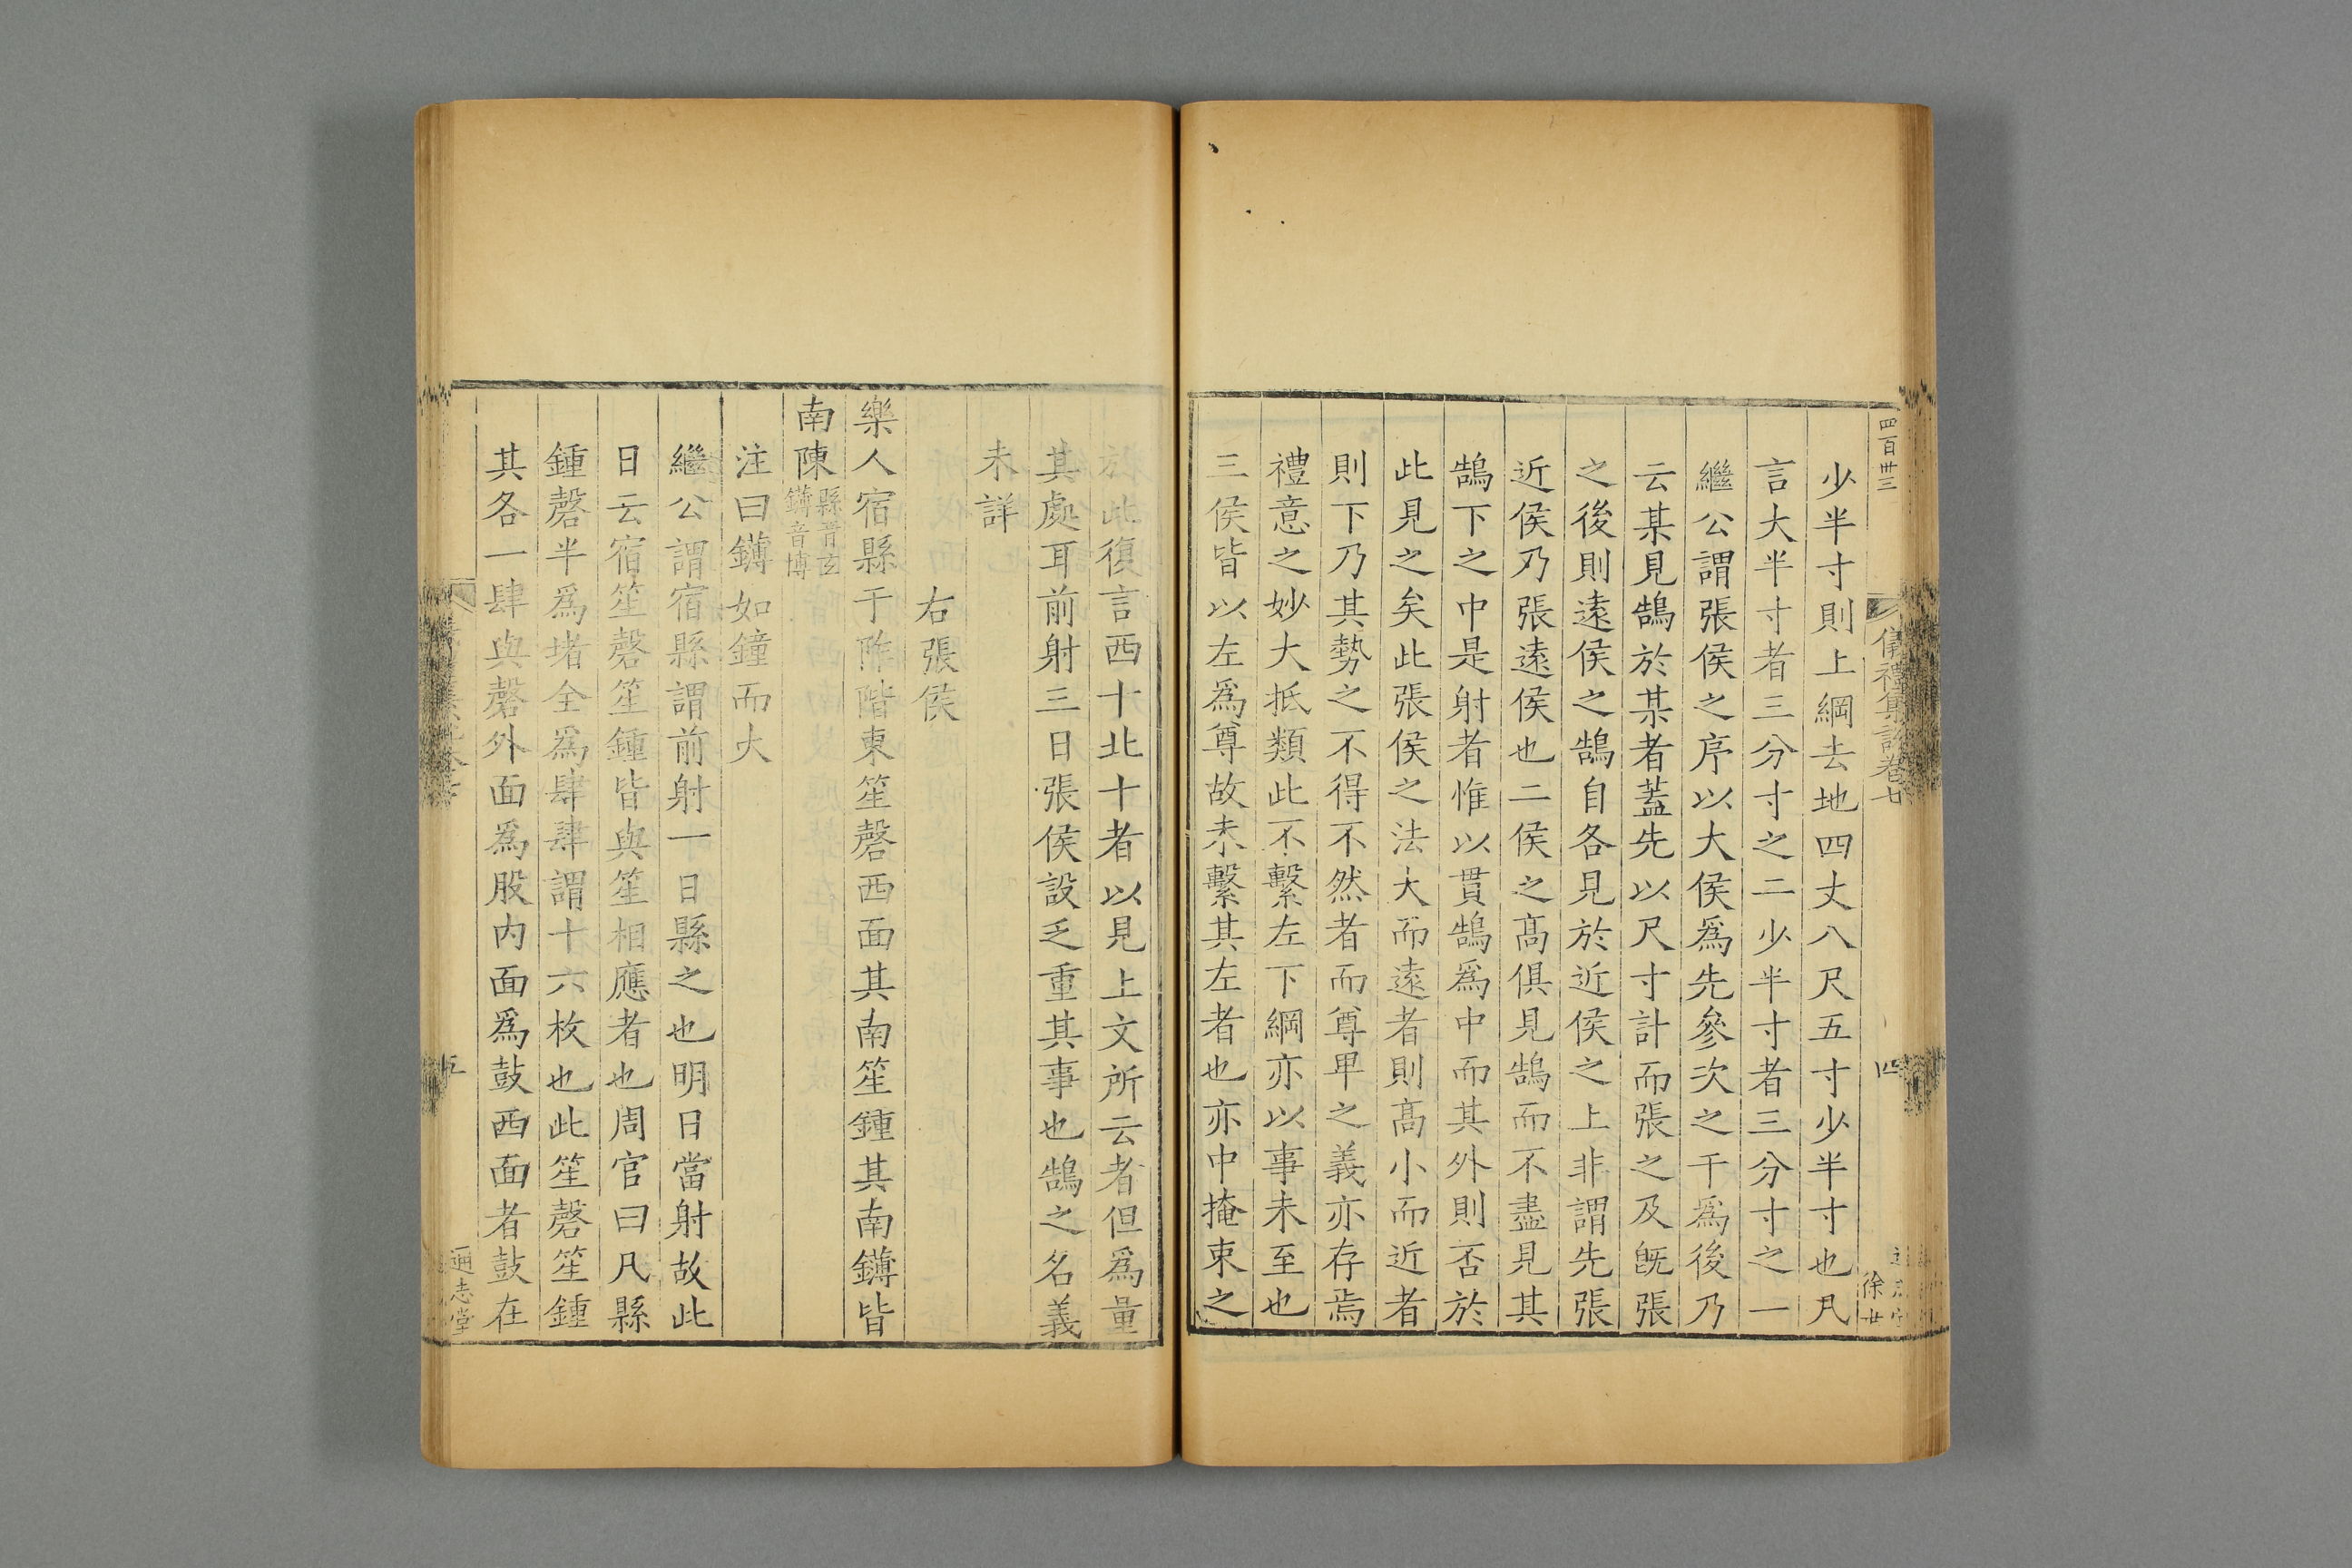 四百卅三
儀禮集說卷七
四
徐世
少半寸則上綱去地四丈八尺五寸少半寸也凡
言大半寸者三分寸之二少半寸者三分寸之一
繼公謂張侯之序以大侯爲先參次之干爲後乃
云某見鵠於某者蓋先以尺寸計而張之及旣張
之後則遠侯之鵠自各見於近侯之上非謂先張
近侯乃張遠侯也二侯之髙俱見鵠而不盡見其
鵠下之中是射者惟以貫鵠爲中而其外則否於
此見之矣此張侯之法大而遠者則髙小而近者
則下乃其勢之不得不然者而尊卑之義亦存焉
禮意之妙大抵類此不繫左下綱亦以事未至也
三侯皆以左爲尊故未繫其左者也亦中掩束之
於此復言西十北十者以見上文所云者但爲量
其處耳前射三日張侯設乏重其事也鵠之名義
未詳
右張侯
樂人宿縣于阼階東笙磬西面其南笙鍾其南鑮皆
南陳縣音玄鑮音博
注曰鑮如鐘而大
繼公謂宿縣謂前射一日縣之也明日當射故此
日云宿笙磬笙鍾皆與笙相應者也周官曰凡縣
鍾磬半爲堵全爲肆肆謂十六枚也此笙磬笙鍾
其各一肆與磬外面爲股内面爲鼓西面者鼓在
五
通志堂